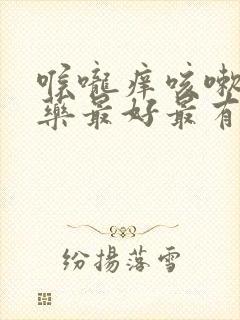 喉嚨痒咳嗽
藥最好最有
纷揚落雪